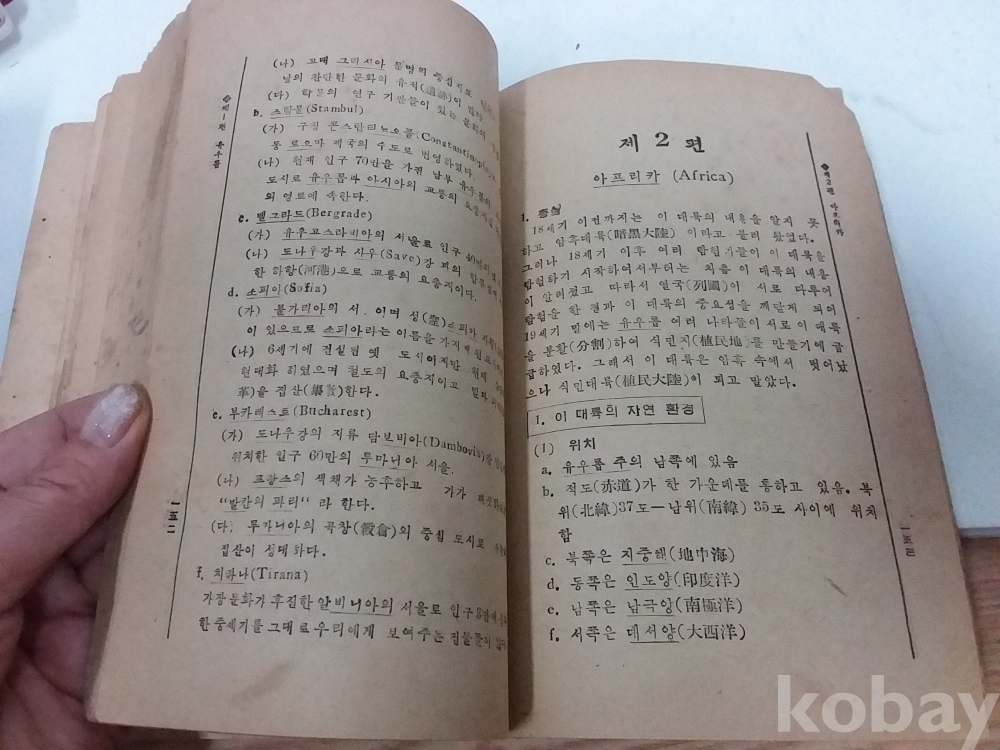 (나) 고대 그리시아 문명의 중심지로
날의 찬란한 문화의 유적(遺跡)이 많다
(다) 학문의 연구 기관들이 있는 문화의
b. 스탐불(Stambul)
(가) 구명 콘스탄티노오플(Constantinople)
동 로오마 제국의 수도로 번영하였다.
(나) 현재 인구 70만을 가진 남부 유우롭의
도시로 유우롭과 아시아의 교통의 요충지
의 영토에 속한다.
c. 벨그라드(Bergrade)
(가) 유우고스라비아의 서울로 인구 40만의
(나) 도나우강과 사우(Save)강 과의
한 하항(河港)으로 교통의 요충지이다.
d. 소피아(Sofia)
(가) 불가리아의 서 이며 성(聖)
이 있으므로 소피아라는 이름을 가지게
(나) 6세기에 건설된 옛 도시이지만 현재
현대화 하였으며 철도의 요충지이고 밀과
을 집산(集散)한다.
e. 부카레스트(Bucharest)
(가) 도나우강의 지류 담보비아(Dambovia)강
위치한 인구 60만의 루마니아 서울.
(나) 프랑스의 색채가 농후하고 가가
"발칸의 파리" 라 한다.
(다) 루마니아의 곡창(穀倉)의 중심 도시로
집산이 성대하다.
f. 치라나(Tirana)
가장문화가 후진한 알비니아의 서울로 인구 8만에
한 중세기를 그대로우리에게 보여주는 건물들이
◆제1편 유우롭
一五二
제 2 편
아프리카 (Africa)
1. 총설
18세기 이전까지는 이 대륙의 내용을 알지 못
하고 암흑대륙(暗黑大陸) 이라고 불려 왔었다.
그러나 18세기 이후 여러 탐험가들이 이 대륙을
탐험하기 시작하여서부터는 차츰 이 대륙의 내용
이 알려졌고 따라서 열국(列國)이 서로 다투어
탐험을 한 결과 이 대륙의 중요성을 깨달게 되어
19세기 말에는 유우롭 여러 나라들이 서로 이 대륙
을 분할(分割)하여 식민지(植民地)를 만들기에 급
급하였다. 그래서 이 대륙은 암흑 속에서 벗어났
으나 식민대륙(植民大陸)이 되고 말았다.
1. 이 대륙의 자연 환경
(1) 위치
a. 유우롭 주의 남쪽에 있음
b. 적도(赤道)가 한 가운데를 통하고 있음. 북
위(北緯)37도―남위(南緯) 35도 사이에 위치
함
c. 북쪽은 지중해(地中海)
d. 동쪽은 인도양(印度洋)
e. 남쪽은 남극양(南極洋)
f. 서쪽은 대서양(大西洋)
◆제2편 아프리카
一五三
kobay